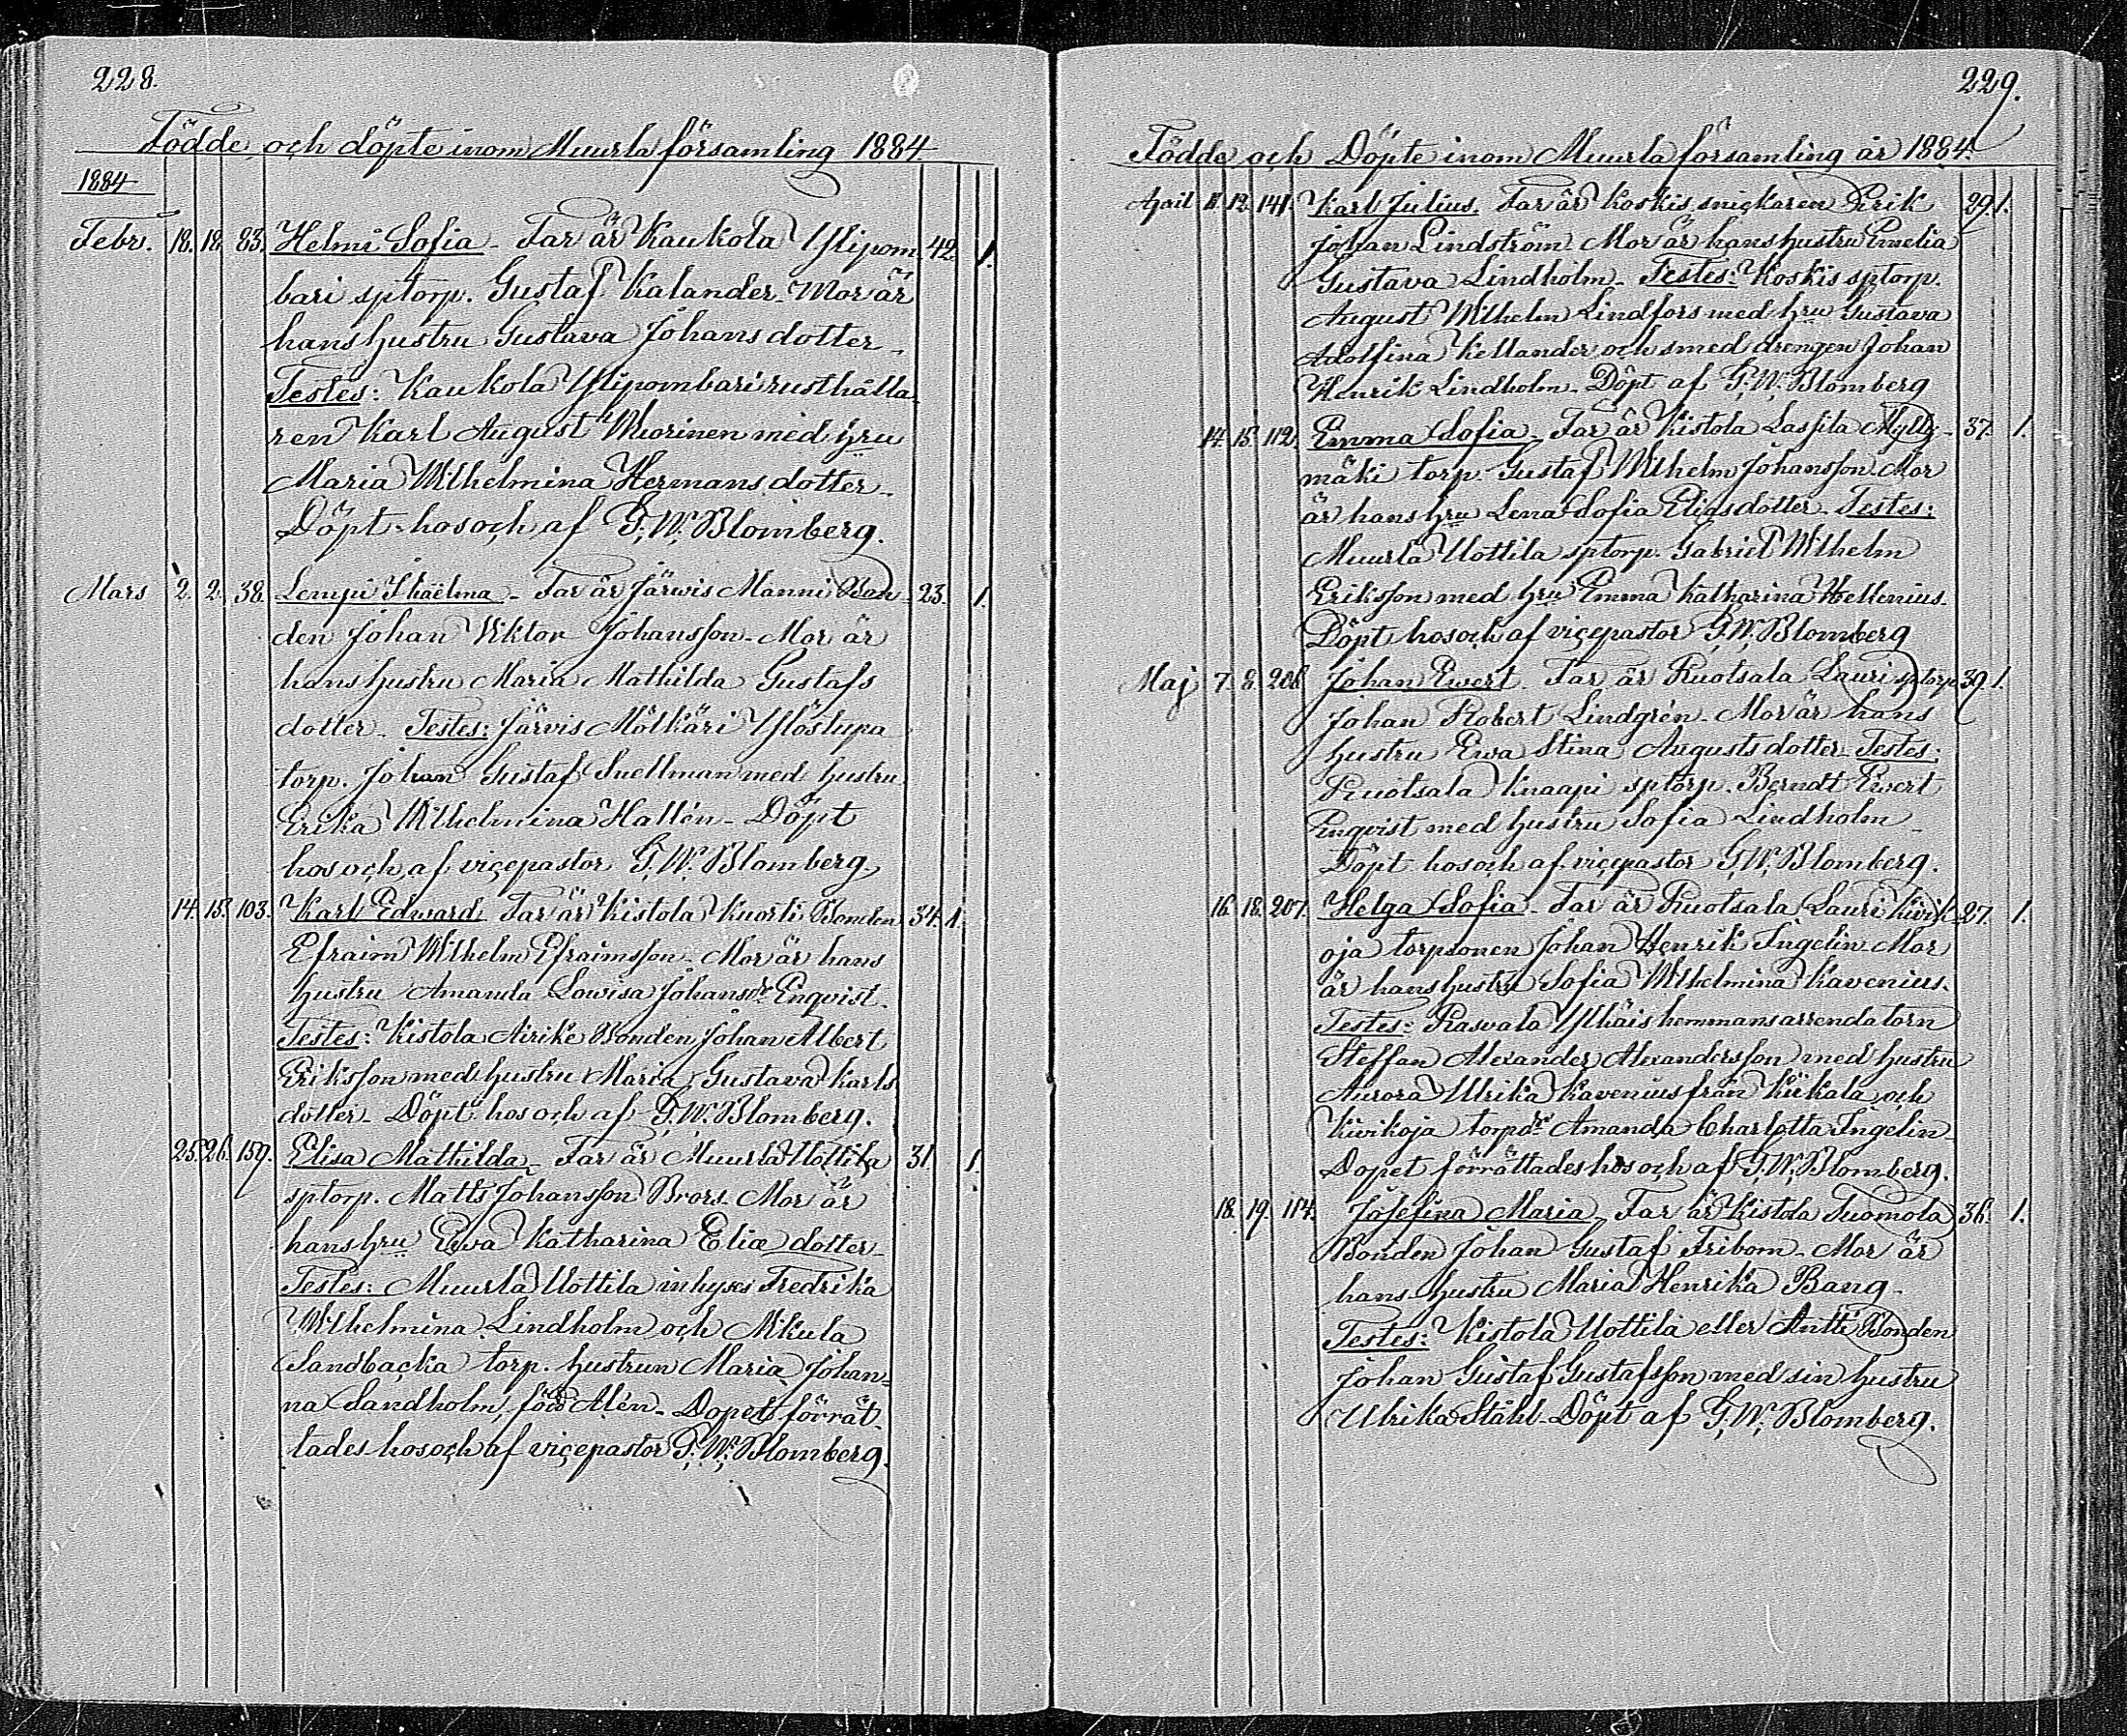 228.
Födde och döpte inom Muurla församling 1884.
1884
Febr. 18. 18. 83. Helmi Sofia - Far är Kaukola Ylipom- 42. 1.
bari sptorp. Gustaf Kalander - Mor är
hans hustru Gustava Johansdotter -
Testes: Kaukola Ylipombari rusthålla-
ren Karl August Wuorinen med hru
Maria Wilhelmina Hermansdotter -
Döpt hos och af G. W. Blomberg.
Mars 2. 2. 38. Lempi - Far är Järwis Manni Bon- 23. 1.
den Johan Viktor Johansson - Mor är
hans hustru Maria Mathilda Gustafs
dotter - Testes: Järvis Mölkäri Ylöstupa
torp. Johan Gustaf Snellman med hustru
Erika Wilhelmina Hallén - Döpt
hos och af vicepastor G. W. Blomberg.
14. 15. 103. Karl Edward. Far är Kistola Kuosti Bonden 34. 1.
Efraim Wilhelm Efraimsson - Mor är hans
hustru Amanda Lowisa Johansdr Enqvist.
Testes: Kistola Airike Bonden Johan Albert
Eriksson med hustru Maria Gustava Karls
dotter - Döpt hos och af G. W. Blomberg.
25. 26. 159. Elisa Mathilda - Far är Muurla Uottila 31. 1.
sptorp. Matts Johansson Brors. Mor är
hans hru Ewa Katharina Eliæ dotter -
Testes: Muurla Uottila inhyses Fredrika
Wilhelmina Lindholm och Mikula
Sandbacka torp. hustrun Maria Johan-
na Sandholm, född Alén - Dopet förrät-
tades hos och af vicepastor G. W. Blomberg.
229.
Födde och Döpte inom Muurla församling år 1884.
April 11. 12. 141. Karl Julius. Far är Koskis snickaren Erik 29. 1.
Johan Lindström Mor är hans hustru Emelia
Gustava Lindholm - Testes: Koskis sptorp.
August Wilhelm Lindfors med hru Gustava
Adolfina Kellander och smed drengen Johan
Henrik Lindholm - Döpt af G. W. Blomberg
14. 15. 112. Emma Sofia - Far är Kistola Lassila Mylly- 37. 1.
mäki torp. Gustaf Wilhelm Johansson Mor
är hans hru Lena Sofia Eliasdotter - Testes:
Muurla Uottila sptorp. Gabriel Wilhelm
Eriksson med hru Emma Katharina Hellenius.
Döpt hos och af vicepastor G. W. Blomberg
Maj 7. 8. 206. Johan Ewert. Far är Ruotsala Lauri sptorp 39. 1.
Johan Robert Lindgrén - Mor är hans
hustru Ewa Stina Augusts dotter - Testes:
Ruotsala Knaapi sptorp. Berndt Ewert
Enqvist med hustru Sofia Lindholm -
Döpt hos och af vicepastor G. W. Blomberg.
16. 18. 207. Helga Sofia - Far är Ruotsala Lauri Kivik- 27. 1.
oja torpsonen Johan Henrik Ingelin Mor
är hans hustru Sofia Wilhelmina Kavenius.
Testes: Rasvala Ylhäis hemmansarrendatorn
Steffan Alexander Alexandersson med hustru
Aurora Ulrika Kavenius från Kiikala och
Kivikoja torpdr Amanda Charlotta Ingelin
Dopet förrättades hos och af G. W. Blomberg.
18. 19. 114. Josefina Maria - Far är Kistola Tuomola 36. 1.
Bonden Johan Gustaf Fribom - Mor är
hans hustru Maria Henrika Bang -
Testes: Kistola Uottila eller Antti Bonden
Johan Gustaf Gustafsson med sin hustru
Ulrika Ståhl - Döpt af G. W. Blomberg.